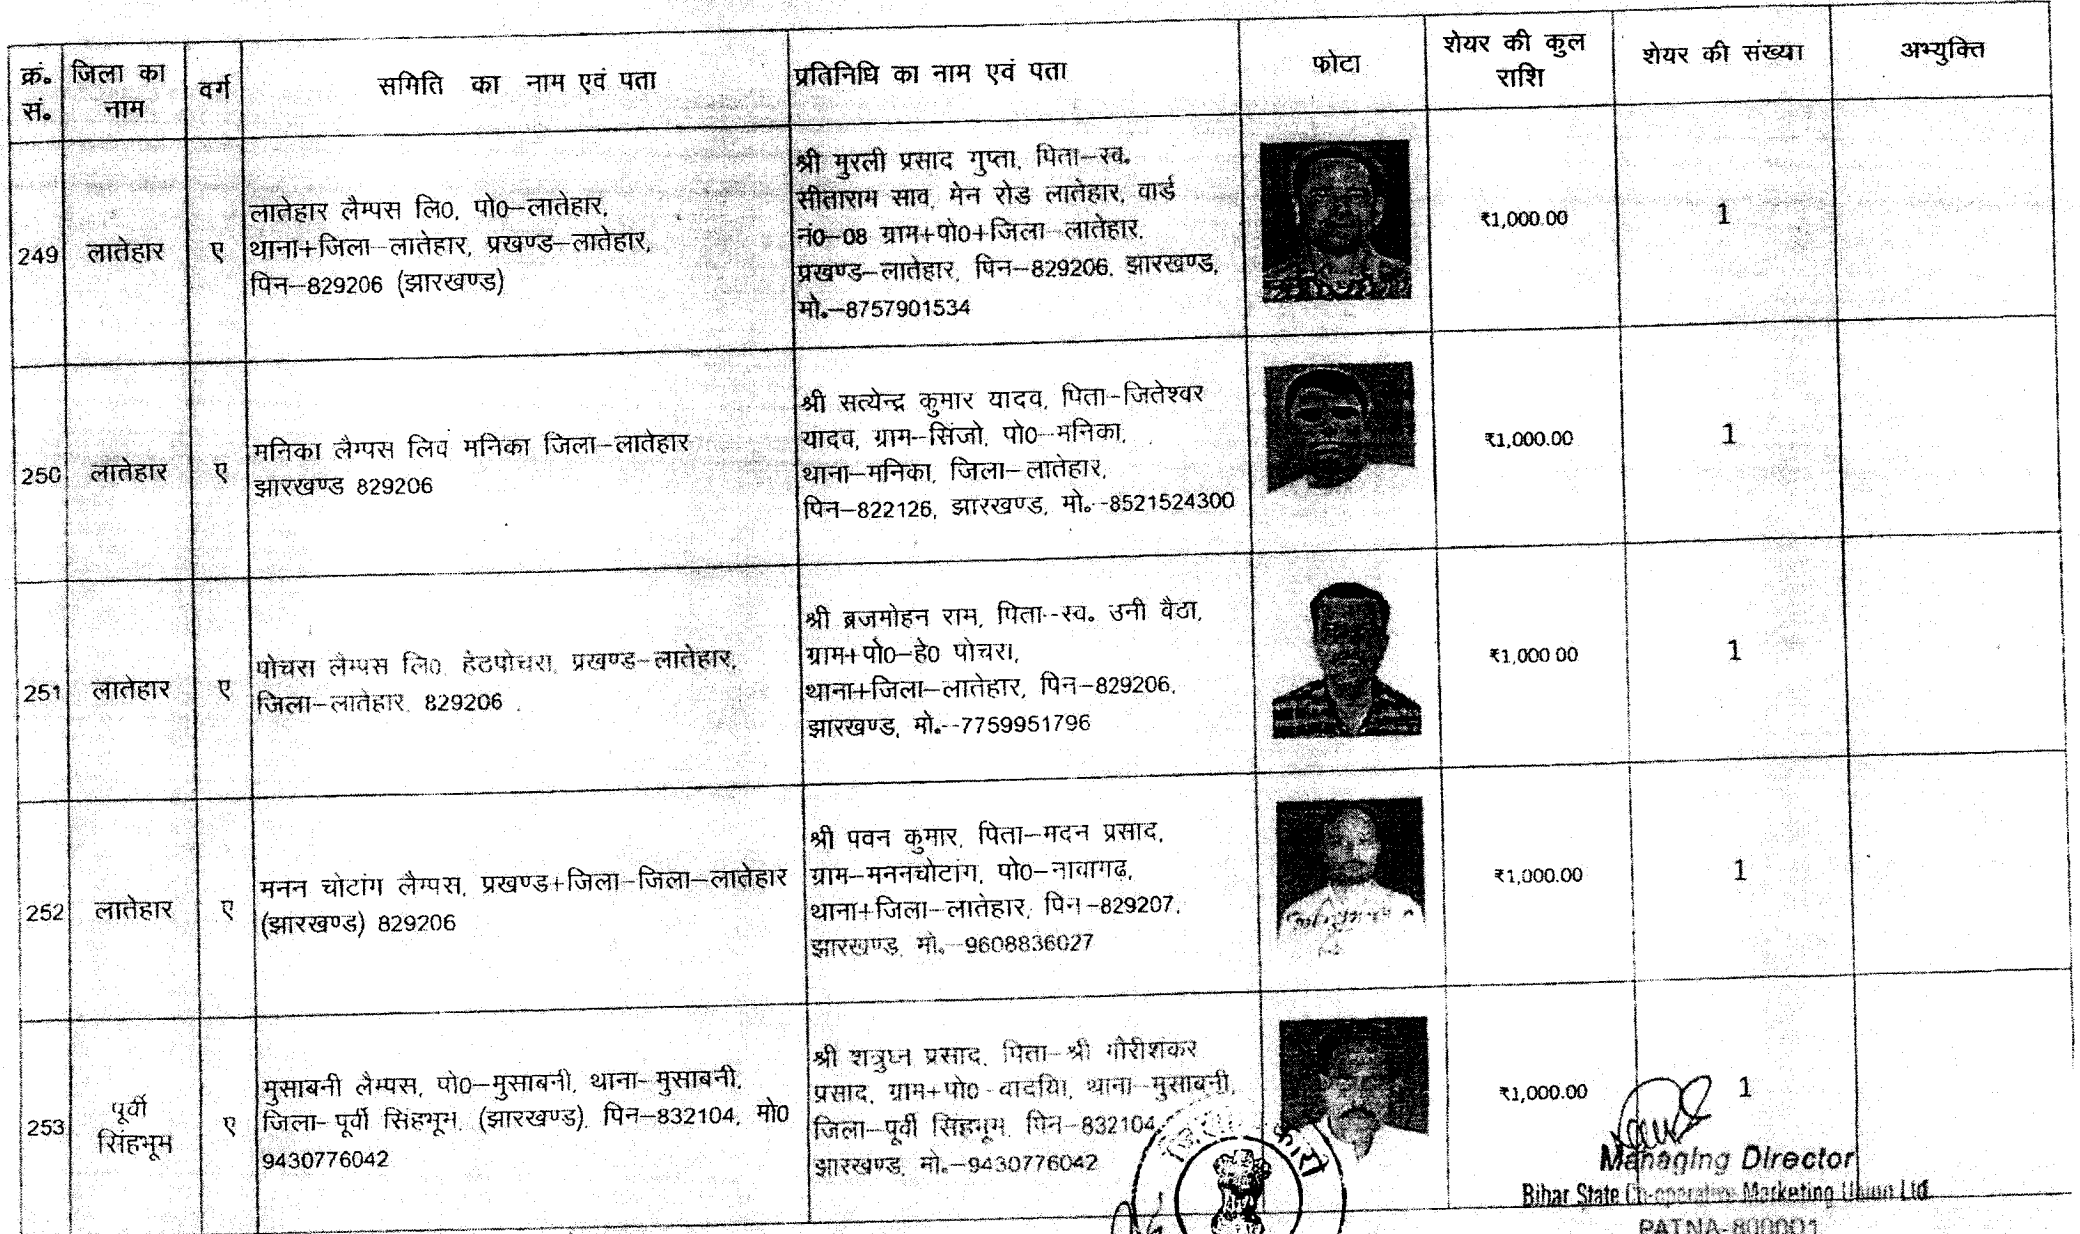 क्रं. सं.
जिला का नाम
वर्ग
समिति का नाम एवं पता
प्रतिनिधि का नाम एवं पता
फोटा
शेयर की कुल राशि
शेयर की संख्या
अभ्युक्ति
249
लातेहार
ए
लातेहार लैम्पस लि0, पो0–लातेहार,
थाना+जिला–लातेहार, प्रखण्ड–लातेहार,
पिन–829206 (झारखण्ड)
श्री मुरली प्रसाद गुप्ता, पिता–स्व.
सीताराम साव, मेन रोड लातेहार, वार्ड
नं0–08 ग्राम+पो0+जिला–लातेहार,
प्रखण्ड–लातेहार, पिन–829206, झारखण्ड,
मो.–8757901534
₹1,000.00
1
250
लातेहार
ए
मनिका लैम्पस लिव मनिका जिला–लातेहार
झारखण्ड 829206
श्री सत्येन्द्र कुमार यादव, पिता–जितेश्वर
यादव, ग्राम–सिंजो, पो0–मनिका,
थाना–मनिका, जिला–लातेहार,
पिन–822126, झारखण्ड, मो.–8521524300
₹1,000.00
1
251
लातेहार
ए
पोचरा लैम्पस लि0, हेठपोचरा, प्रखण्ड–लातेहार,
जिला–लातेहार, 829206
श्री ब्रजमोहन राम, पिता–स्व. उनी वैठा,
ग्राम+पो0–हे0 पोचरा,
थाना+जिला–लातेहार, पिन–829206,
झारखण्ड, मो.–7759951796
₹1,000.00
1
252
लातेहार
ए
मनन चोटांग लैम्पस, प्रखण्ड+जिला–जिला–लातेहार
(झारखण्ड) 829206
श्री पवन कुमार, पिता–मदन प्रसाद,
ग्राम–मननचोटांग, पो0–नावागढ़,
थाना+जिला–लातेहार, पिन–829207,
झारखण्ड, मो.–9608836027
₹1,000.00
1
253
पूर्वी
सिंहभूम
ए
मुसाबनी लैम्पस, पो0–मुसाबनी, थाना–मुसाबनी,
जिला–पूर्वी सिंहभूम, (झारखण्ड), पिन–832104, मो0
9430776042
श्री शत्रुघ्न प्रसाद, पिता–श्री गौरीशंकर
प्रसाद, ग्राम+पो0 थाना–मुसाबनी,
जिला–पूर्वी सिंहभूम, पिन–832104
झारखण्ड, मो.–9430776042
₹1,000.00
1
Managing Director
Bihar State Co-operative Marketing Union Ltd.
PATNA-800001